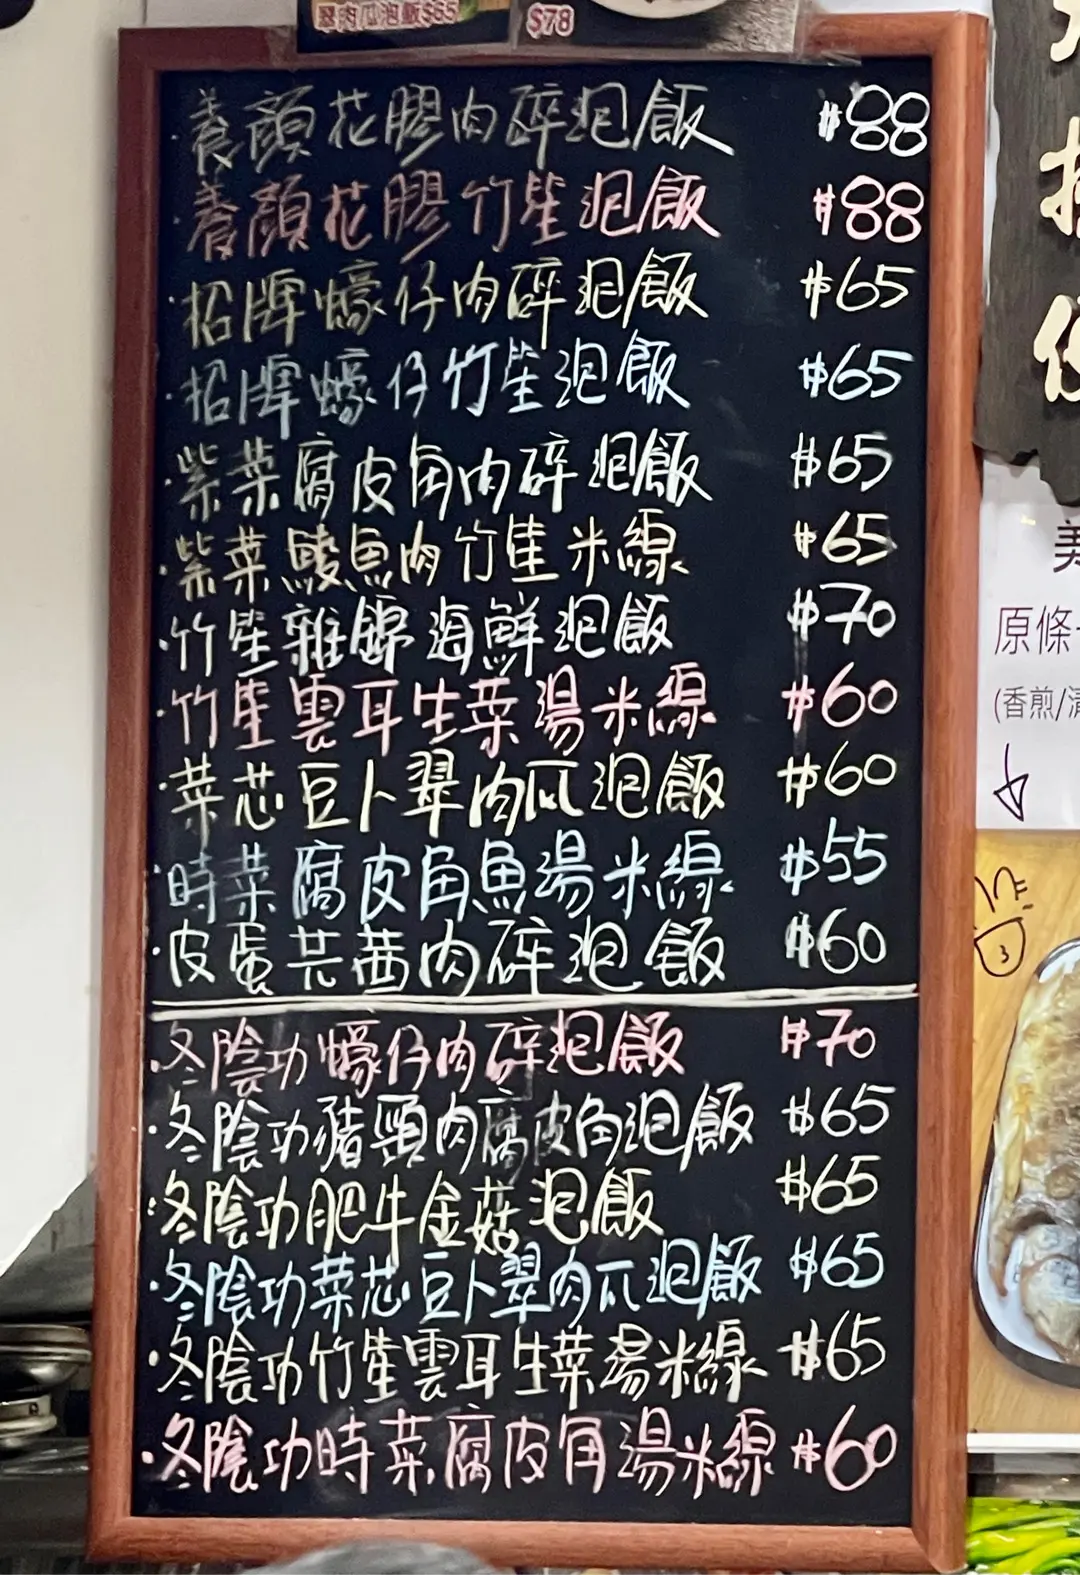 翠肉瓜泡飯$65
$78
·養顏花膠肉碎泡飯 $88
·養顏花膠竹笙泡飯 $88
·招牌蠔仔肉碎泡飯 $65
·招牌蠔仔竹笙泡飯 $65
·紫菜腐皮角肉碎泡飯 $65
·紫菜鯪魚肉竹笙米線 $65
·竹笙雜錦海鮮泡飯 $70
·竹笙雲耳生菜湯米線 $60
·菜芯豆卜翠肉瓜泡飯 $60
·時菜腐皮角魚湯米線 $55
·皮蛋芫茜肉碎泡飯 $60
·冬陰功蠔仔肉碎泡飯 $70
·冬陰功豬頸肉腐皮角泡飯 $65
·冬陰功肥牛金菇泡飯 $65
·冬陰功菜芯豆卜翠肉瓜泡飯 $65
·冬陰功竹笙雲耳生菜湯米線 $65
·冬陰功時菜腐皮角湯米線 $60
美
原條
(香煎/清